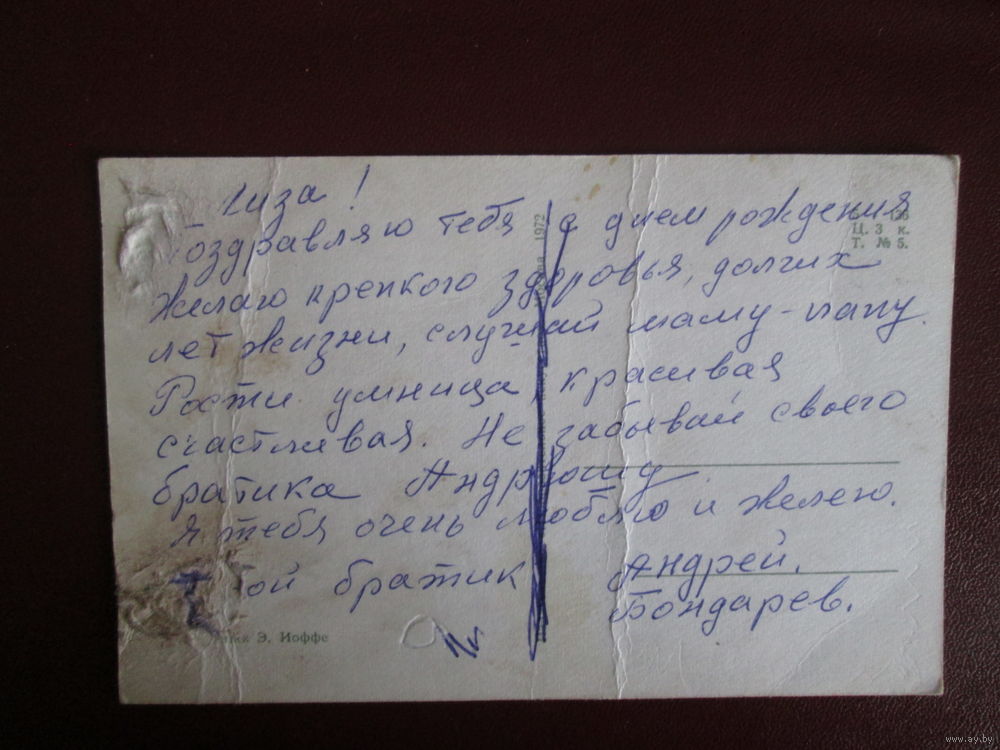 Лиза!
Поздравляю тебя с днем рождения
Желаю крепкого здоровья, долгих
лет жизни, слушай маму-папу.
Расти умница, красивая
счастливая. Не забывай своего
братика Андрюшу
Я тебя очень люблю и желею.
Твой братик Андрей.
Бондарев.
1972
Ц. 3 к.
Т. № 5.
Э. Иоффе
www.ay.by